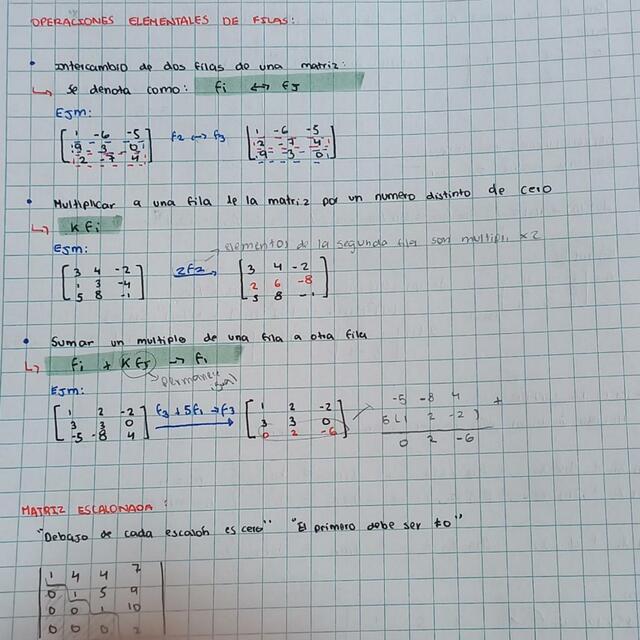 OPERACIONES ELEMENTALES DE FILAS:
• Intercambio de dos filas de una matriz:
↳ Se denota como: fi ↔ fj
Ejm:
[1 -6 -5] f2 ↔ f3 [1 -6 -5]
[9 -3 0] [2 -7 4]
[2 -7 4] [9 -3 0]
• Multiplicar a una fila de la matriz por un numero distinto de cero
↳ K fi
Ejm: elementos de la segunda fila son multipl. x2
[3 4 -2] 2f2 → [3 4 -2]
[1 3 -4] [2 6 -8]
[5 8 -1] [5 8 -1]
• Sumar un multiplo de una fila a otra fila
↳ fi + K fj → fi
permanece igual
Ejm:
[1 2 -2] f3 + 5f1 → f3 [1 2 -2] -5 -8 4 +
[3 3 0] [3 3 0] 5(1 2 -2)
[-5 -8 4] [0 2 -6] 0 2 -6
MATRIZ ESCALONADA:
"Debajo de cada escalón es cero" "El primero debe ser ≠0"
1 4 4 7
0 1 5 9
0 0 1 10
0 0 0 2